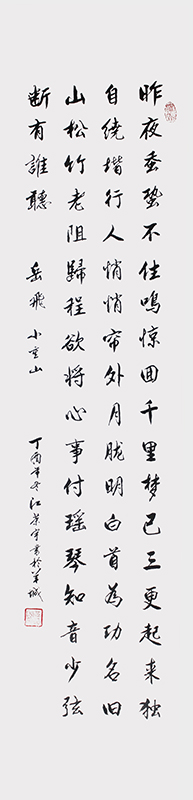 昨夜蚕蛩不住鳴惊囬千里梦已三更起来独
自绕堦行人悄悄帘外月胧明白首為功名旧
山松竹老阻歸程欲将心事付瑶琴知音少弦
断有誰聽 岳飛 小重山 丁酉年冬江書於羊城